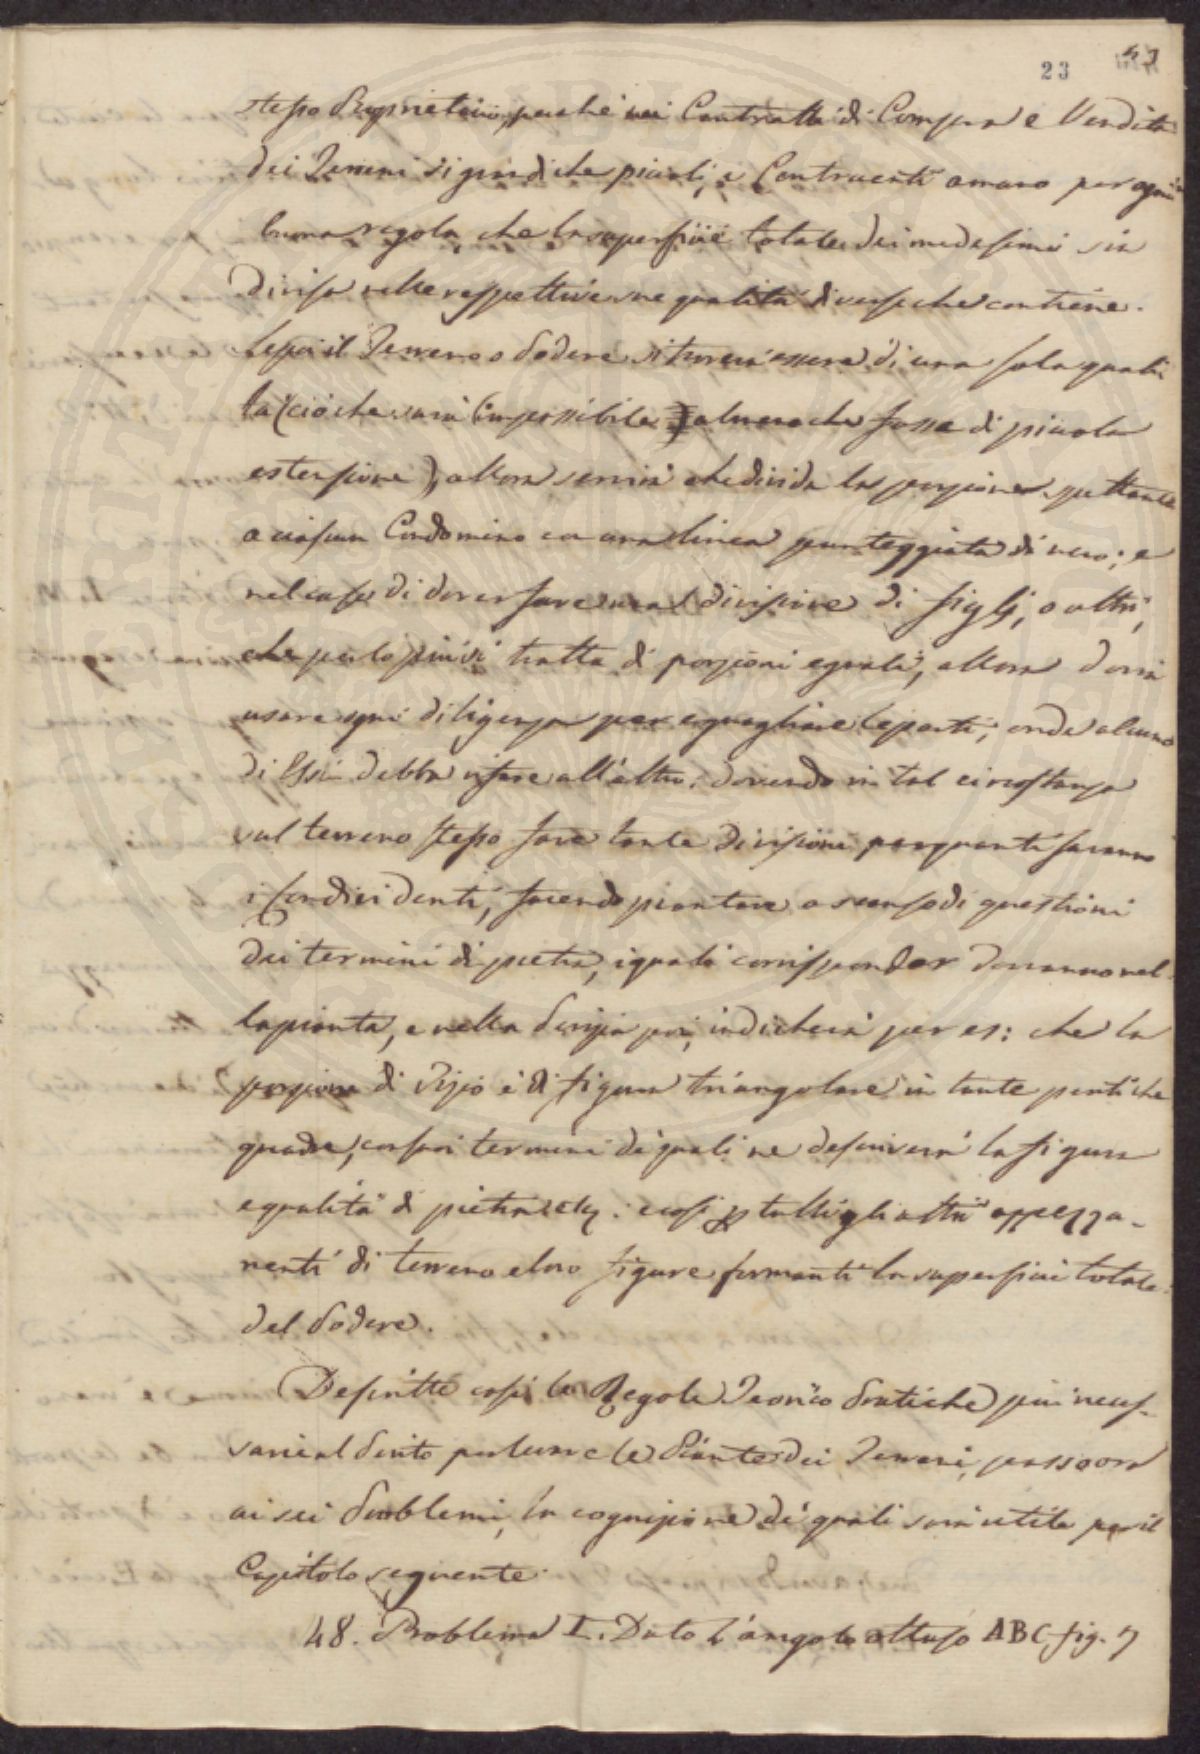 23 43
stesso Proprietario, perché nei Contratti di Compra e Vendita
dei Terreni sì grandi che piccoli, i Contraenti amano per ogni
buona regola che la superficie totale dei medesimi sia
divisa nelle respettive sue qualità diverse che contiene.
Se poi il Terreno o Podere si troverà essere di una sola quali-
tà (ciò che sarà impossibile, almeno che fosse di piccola
estensione), allora servirà che divida la porzione spettante
a ciascun Condomino con una linea punteggiata di nero; e
nel caso di dover fare una divisione di figlj, o altri,
che per lo più si tratta di porzioni eguali, allora dovrà
usare ogni diligenza per eguagliare le parti, onde alcuno
di Essi debba rifare all'altro: dovendo in tal circostanza
sul terreno stesso fare tante divisioni per quanti saranno
i Condividenti, facendo piantare a scanso di questioni
dei termini di pietra, i quali corrisponder dovranno nel-
la pianta, e nella perizia poi, indicherà per es: che la
porzione di Tizio è di figura triangolare in tante pertiche
quadre, con suoi termini de' quali ne descriverà la figura
e qualità di pietra etc: e così per tutti gli altri appezza-
menti di terreno e loro figure formanti la superficie totale
del Podere.
Descritte così le Regole Teorico Pratiche più neces-
sarie al Perito per levare le Piante dei Terreni, passo ora
ai sei Problemi, la cognizione de' quali sarà utile per il
Capitolo seguente.
48. Problema I. Dato l'angolo ottuso ABC fig. 7